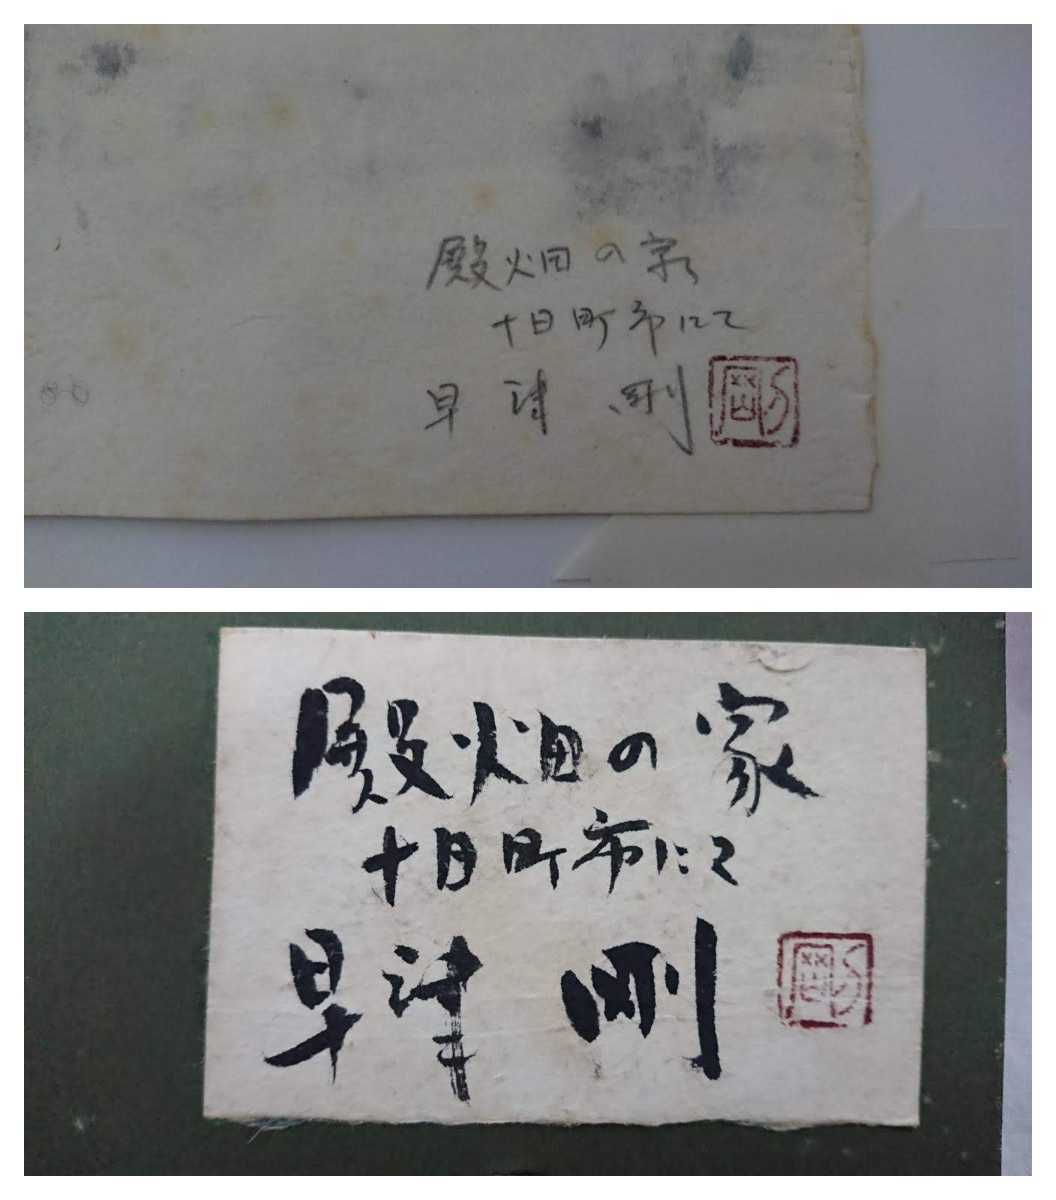 殿畑の家
十日町市にて
早津 剛
剛
殿畑の家
十日町市にて
早津 剛
剛